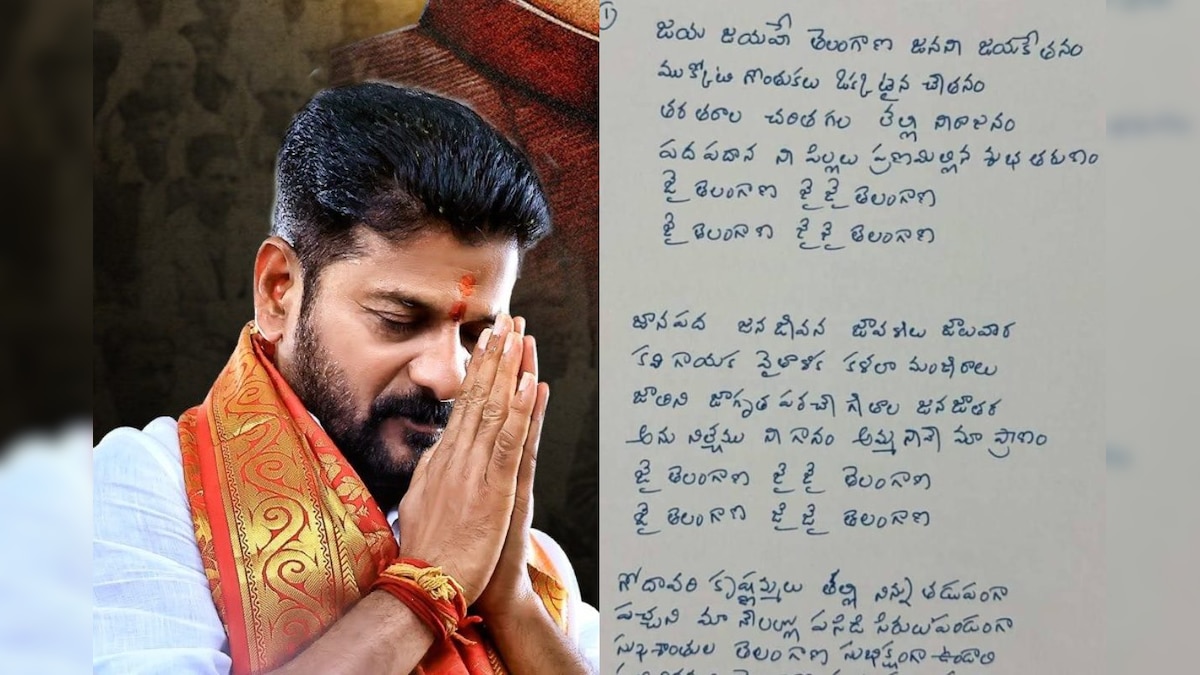 1
జయ జయహే తెలంగాణ జననీ జయకేతనం
ముక్కోటి గొంతుకలు ఒక్కటైన చేతనం
తర తరాల చరితగల తల్లీ నీరాజనం
పద పదాన నీ పిల్లలు ప్రణమిల్లిన శుభ తరుణం
జై తెలంగాణ జై జై తెలంగాణ
జై తెలంగాణ జై జై తెలంగాణ
జానపద జన జీవన జావళీలు జాలువార
కవి గాయక వైతాళిక కళలా మంజీరాలు
జాతిని జాగృత పరచే గీతాల జనజాతర
అను నిత్యము నీ గానం అమ్మ నీవే మా ప్రాణం
జై తెలంగాణ జై జై తెలంగాణ
జై తెలంగాణ జై జై తెలంగాణ
గోదావరి కృష్ణమ్మలు తల్లీ నిన్ను తడుపంగా
పచ్చని మా నేలల్లో పసిడి సిరులు పండంగా
సుఖశాంతుల తెలంగాణ సుభిక్షంగా ఉండాలి